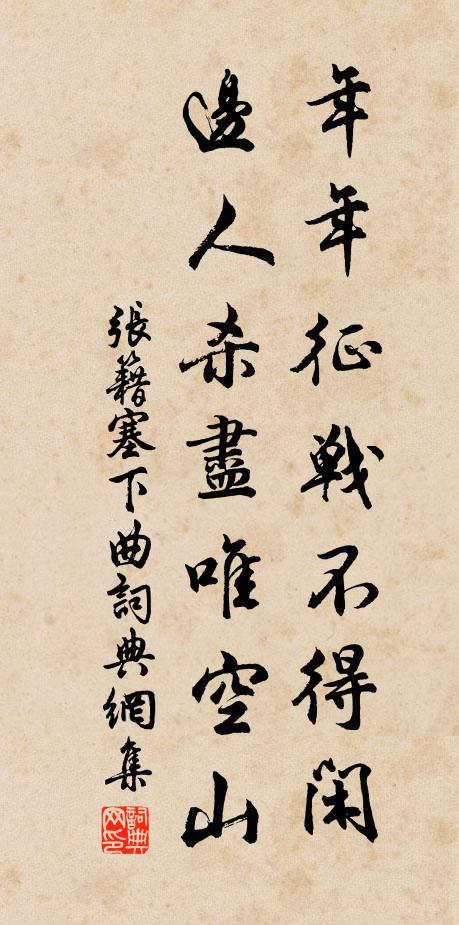 年年征戰不得閑
邊人杀盡唯空山
張籍塞下曲詞典網集
詞典网印